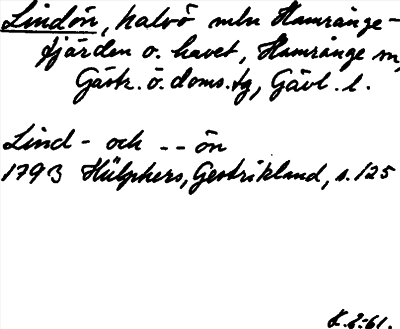 Lindön, halvö mln Hamrånge-
fjärden o. havet, Hamrånge sn,
Gästr. ö. doms.tg, Gävl. l.
Lind- och -- ön
1793 Hülphers, Gestrikland, s. 125
K.E:61.